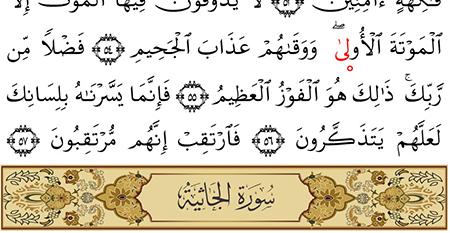 فَٰكِهَةٍ ءَامِنِينَ ٥٥ لَا يَذُوقُونَ فِيهَا ٱلْمَوْتَ إِلَّا
ٱلْمَوْتَةَ ٱلْأُولَىٰ ۖ وَوَقَىٰهُمْ عَذَابَ ٱلْجَحِيمِ ٥٤ فَضْلًا مِّن
رَّبِّكَ ۚ ذَٰلِكَ هُوَ ٱلْفَوْزُ ٱلْعَظِيمُ ٥٥ فَإِنَّمَا يَسَّرْنَٰهُ بِلِسَانِكَ
لَعَلَّهُمْ يَتَذَكَّرُونَ ٥٦ فَٱرْتَقِبْ إِنَّهُم مُّرْتَقِبُونَ ٥٧
سُورَةُ الجَاثِيَةِ